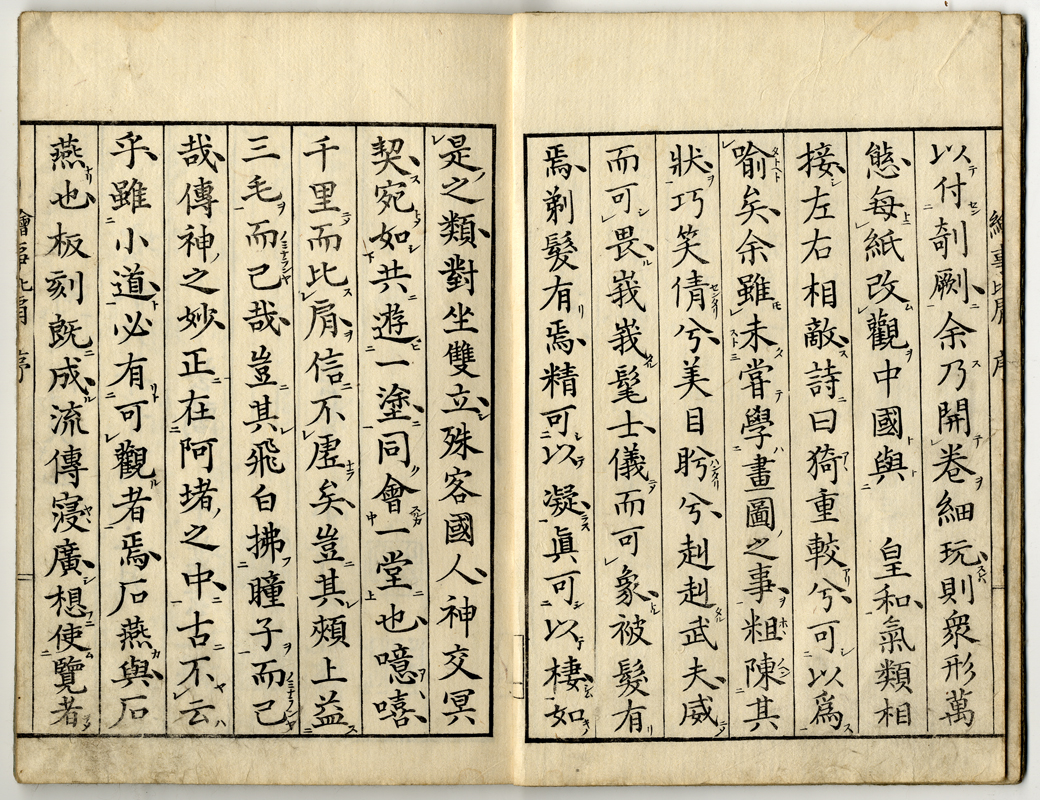 以付剞劂余乃開卷細玩則衆形萬
態每紙改觀中國與　皇和氣類相
接左右相敵詩曰猗重較兮可以爲
喻矣余雖未甞學畫圖之事粗陳其
狀巧笑倩兮美目盻兮赳赳武夫威
而可畏峩峩髦士儀而可象被髮有
焉剃髮有焉精可以凝眞可以棲如
是之類對坐雙立殊客國人神交冥
契宛如共遊一塗同會一堂也噫嘻
千里而比肩信不虛矣豈其頰上益
三毛而已哉豈其飛白拂瞳子而已
哉傳神之妙正在阿堵之中古不云
乎雖小道必有可觀者焉石燕與石
燕也板刻旣成流傳寖廣想使覽者